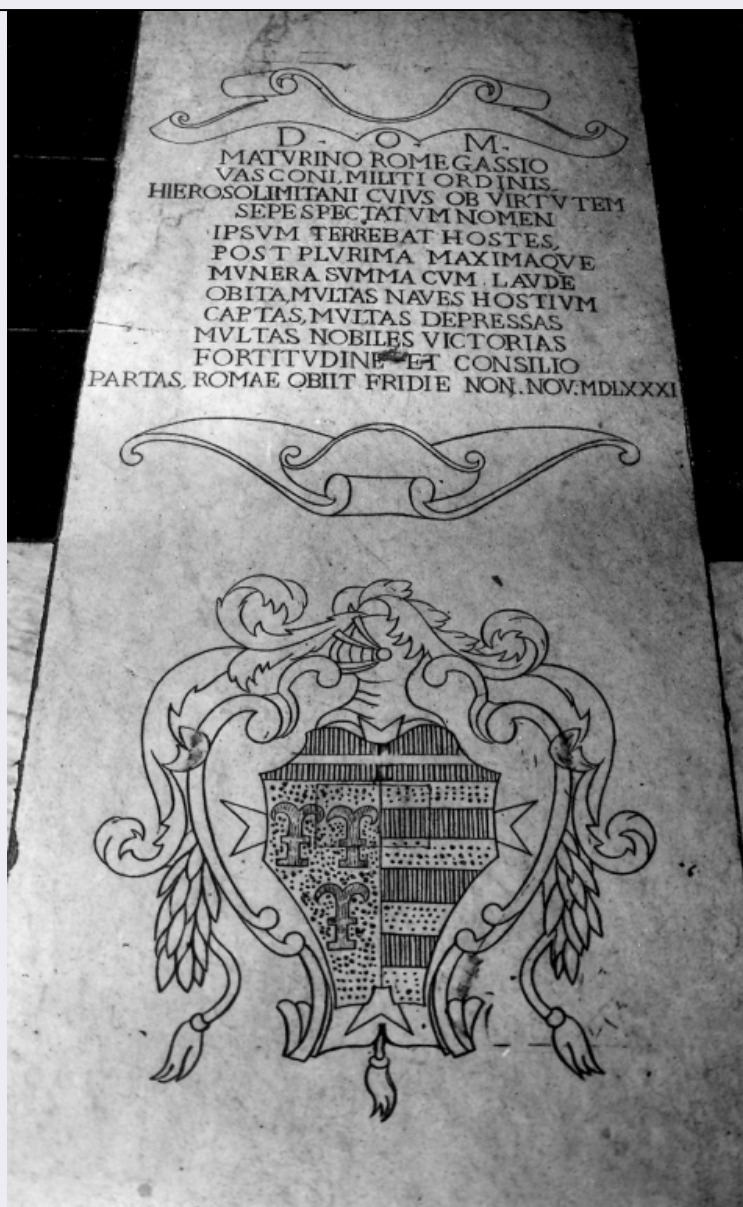 D. O. M.
MATVRINO ROMEGASSIO
VASCONI, MILITI ORDINIS
HIEROSOLIMITANI CVIVS OB VIRTVTEM
SEPE SPECTATVM NOMEN
IPSVM TERREBAT HOSTES,
POST PLVRIMA MAXIMAQVE
MVNERA SVMMA CVM LAVDE
OBITA, MVLTAS NAVES HOSTIVM
CAPTAS, MVLTAS DEPRESSAS
MVLTAS NOBILES VICTORIAS
FORTITVDINE ET CONSILIO
PARTAS, ROMAE OBIIT FRIDIE NON. NOV. MDLXXXI